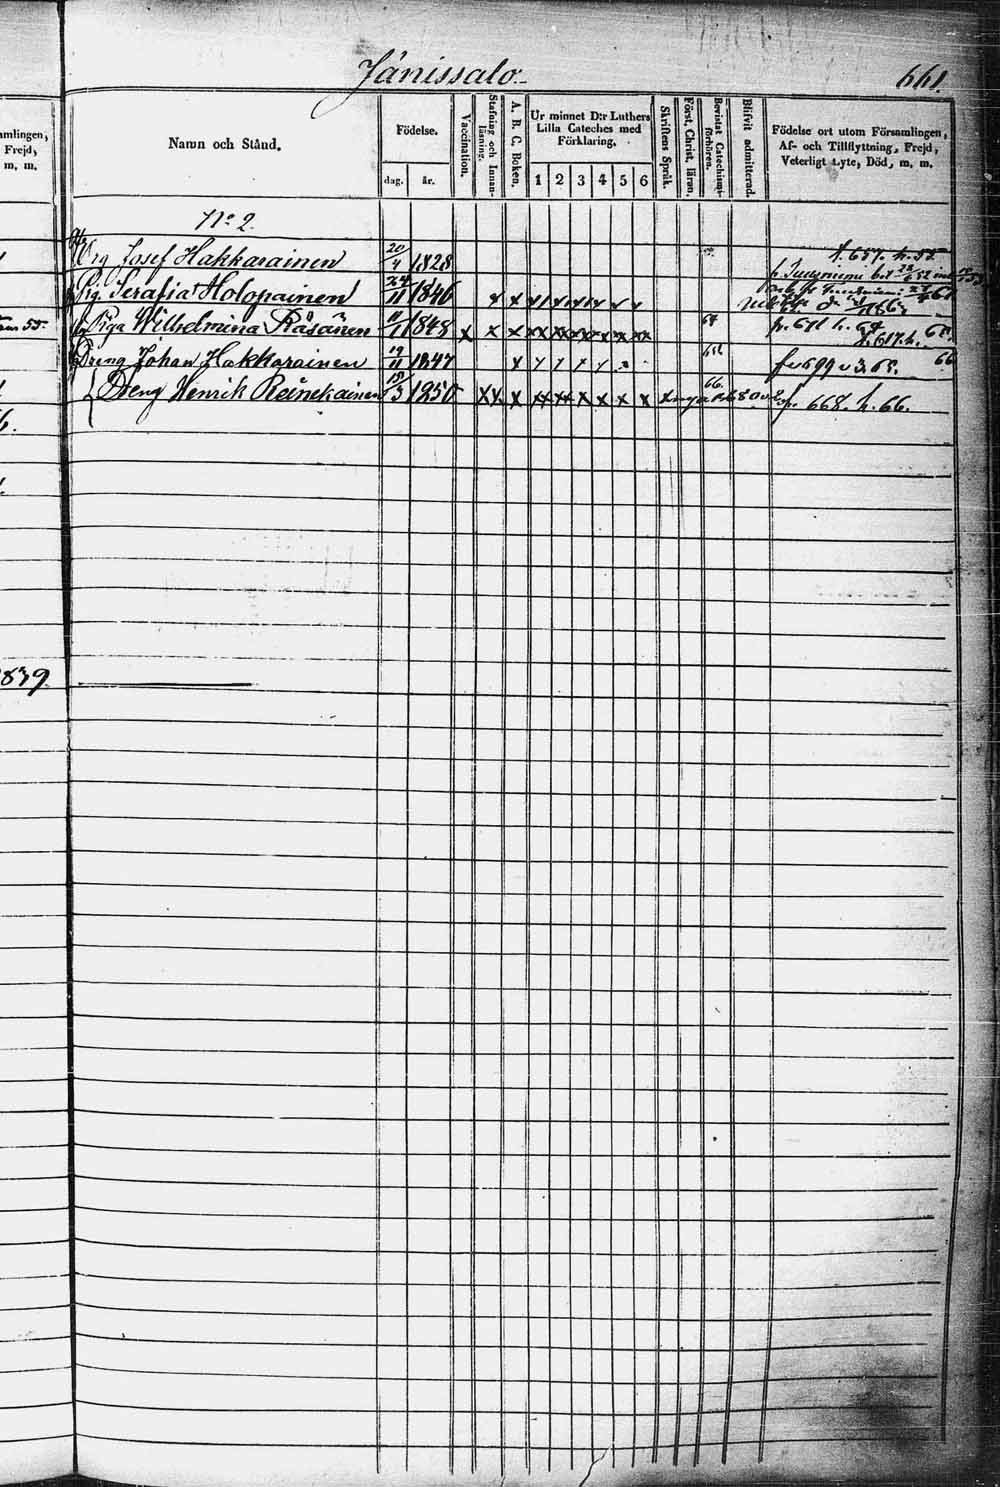 Jänissalo.
661.
amlingen,
Frejd,
m. m.
Namn och Stånd.
Födelse.
dag. år.
Vaccination.
Stafning och Innanläsning.
A. B. C. Boken.
Ur minnet D:r Luthers
Lilla Cateches med
Förklaring.
1 2 3 4 5 6
Skriftens Språk.
Först. Christ. läran.
Bevistat Catechismi-förhören.
Blifvit admitterad.
Födelse ort utom Församlingen,
Af- och Tillflyttning, Frejd,
Veterligt Lyte, Död, m. m.
No 2.
Drg Josef Hakkarainen 20/4 1828 f. 657. h. 55
Pig. Serafia Holopainen 24/11 1846 x x x x x x x x
Piga Wilhelmina Räsänen 11/1 1848 x x x xx xx xx xx xx xx 64 p. 671 h. 64
f. 617. h. 65.
Dreng Johan Hakkarainen 19/11 1847 x x x x x fr 699 v 3. 65. 66
Dreng Henrik Reinekainen 15/3 1850 xx x xx xx x x x x x 66. p. 668. h. 66.
55.
1839